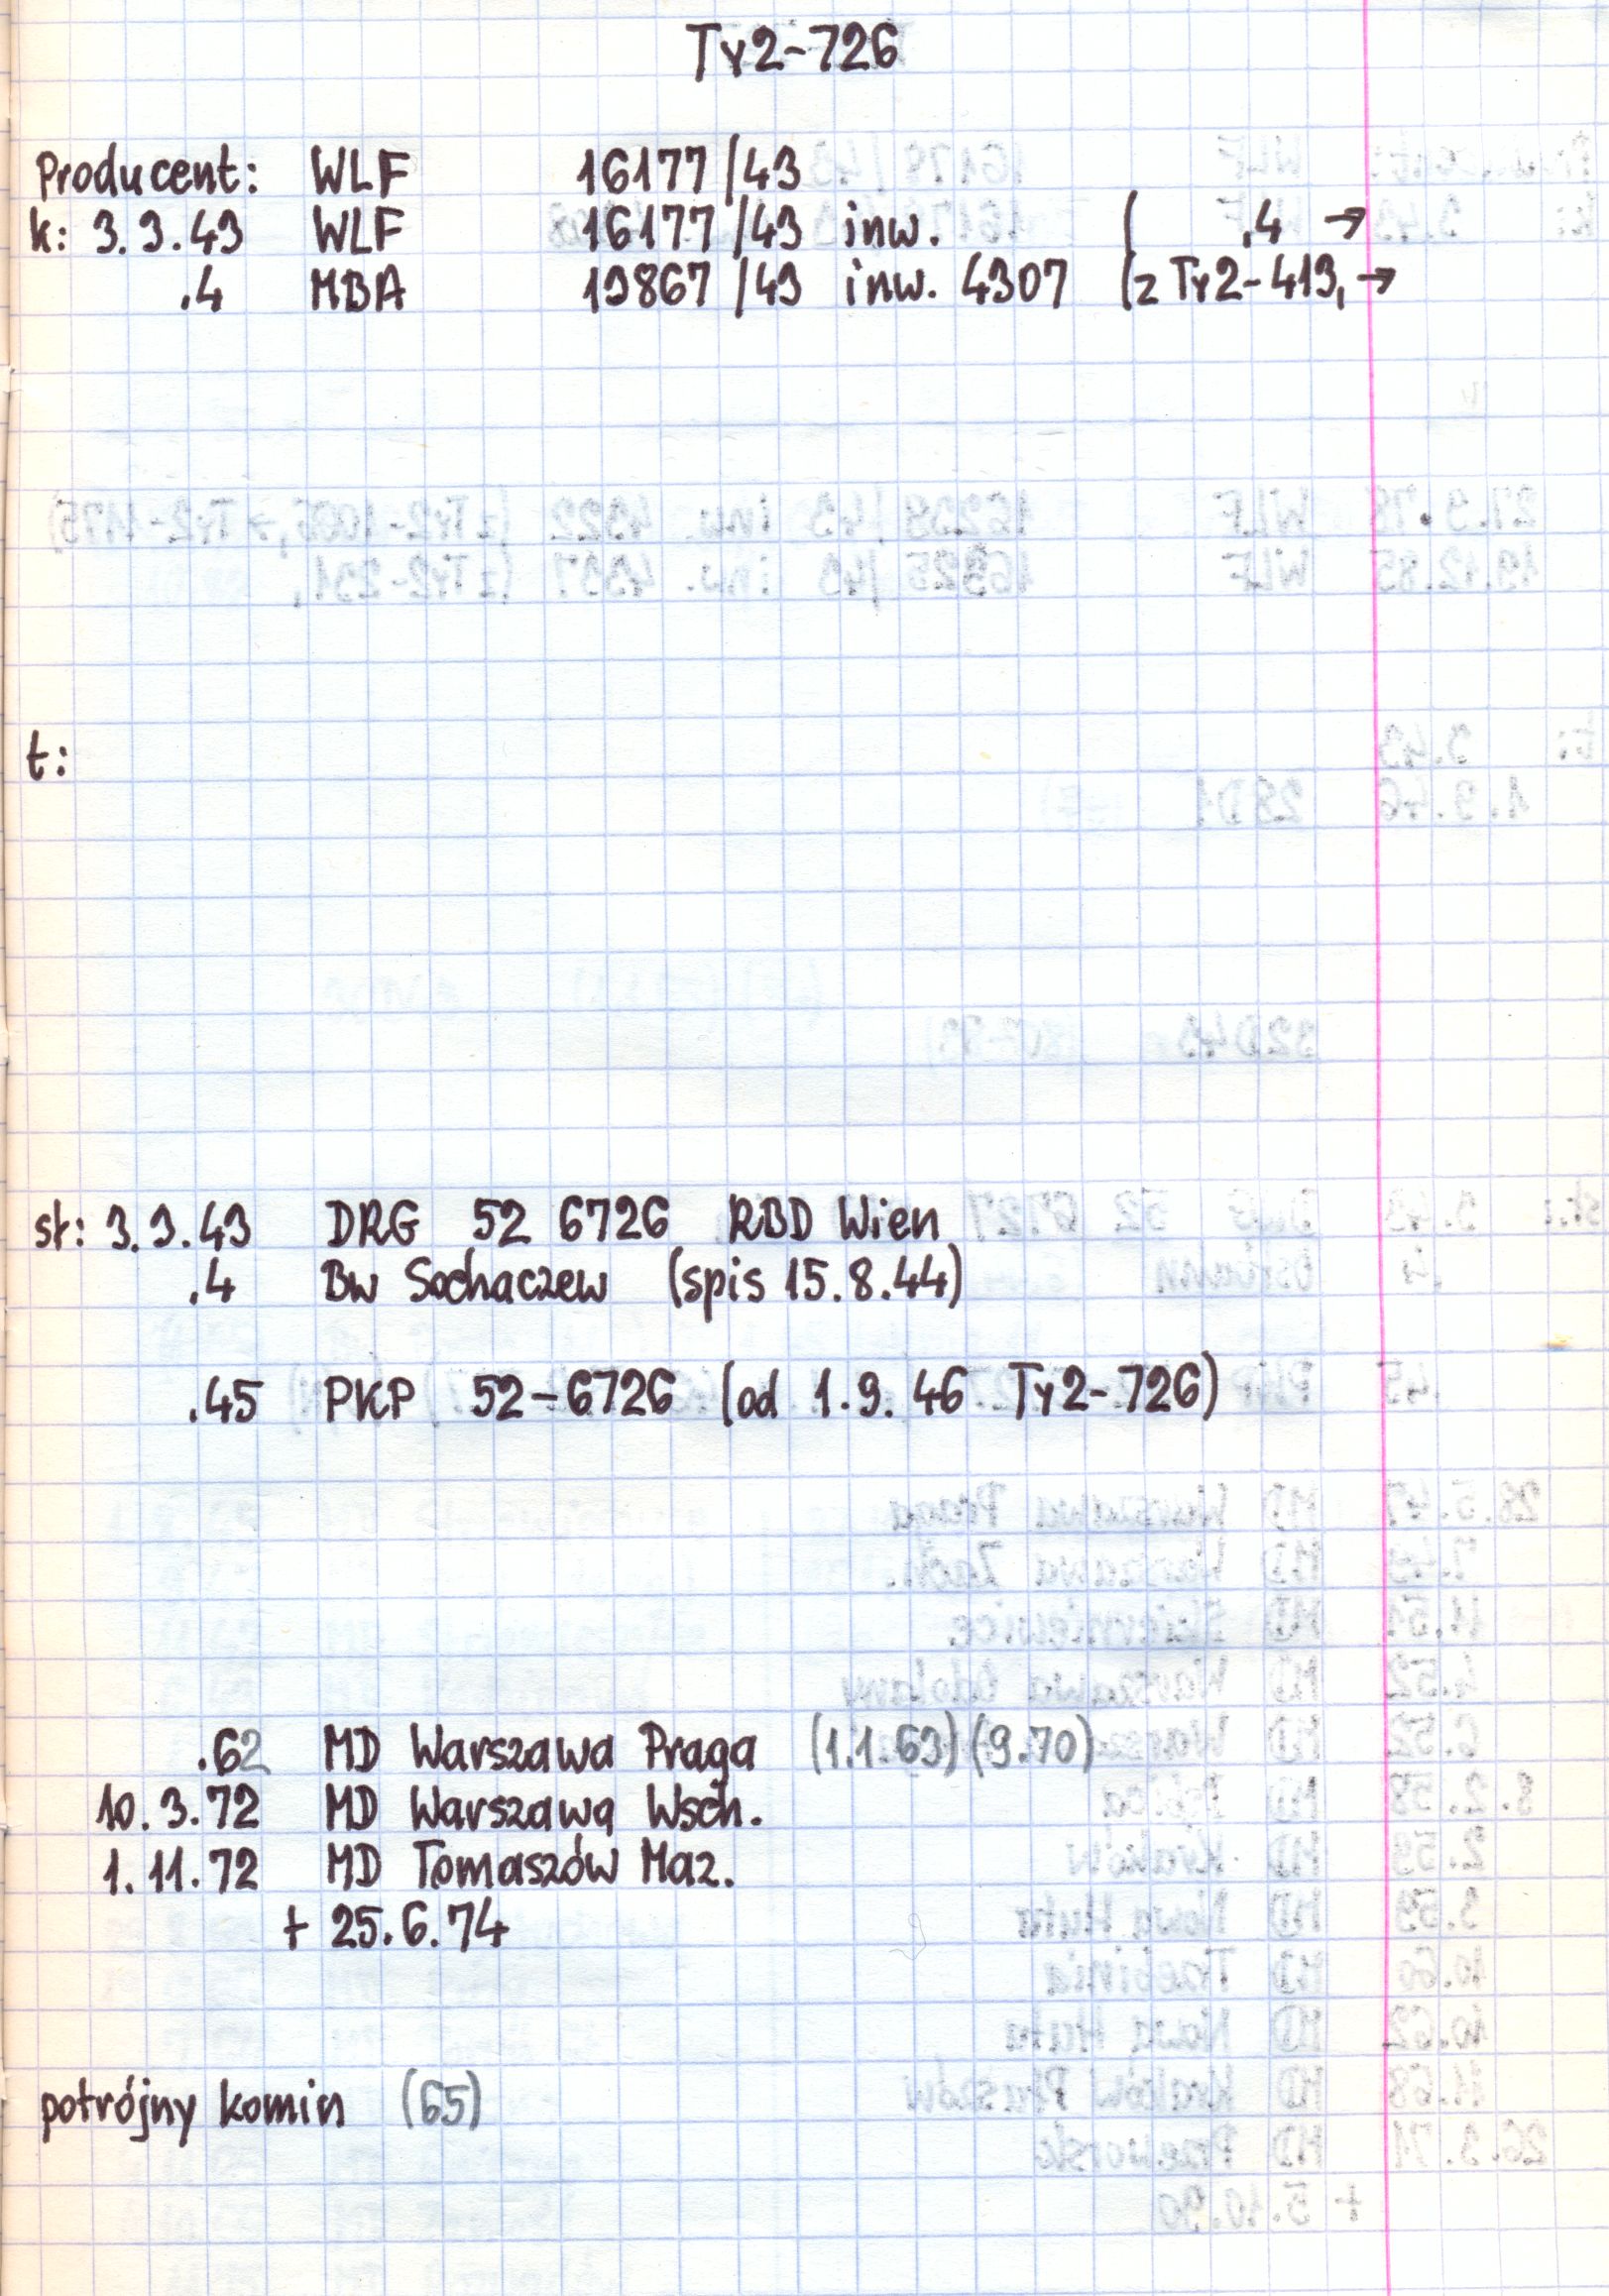 Ty2-726
Producent: WLF 16177/43
k: 3.3.43 WLF 16177/43 inw. ( .4 →
.4 MBA 13867/43 inw. 4307 (z Ty2-413, →
t:
st: 3.3.43 DRG 52 6726 RBD Wien
.4 Bw Sochaczew (spis 15.8.44)
.45 PKP 52-6726 (od 1.9.46 Ty2-726)
.62 MD Warszawa Praga (1.1.63) (9.70)
10.3.72 MD Warszawa Wsch.
1.11.72 MD Tomaszów Maz.
+ 25.6.74
potrójny komin (65)